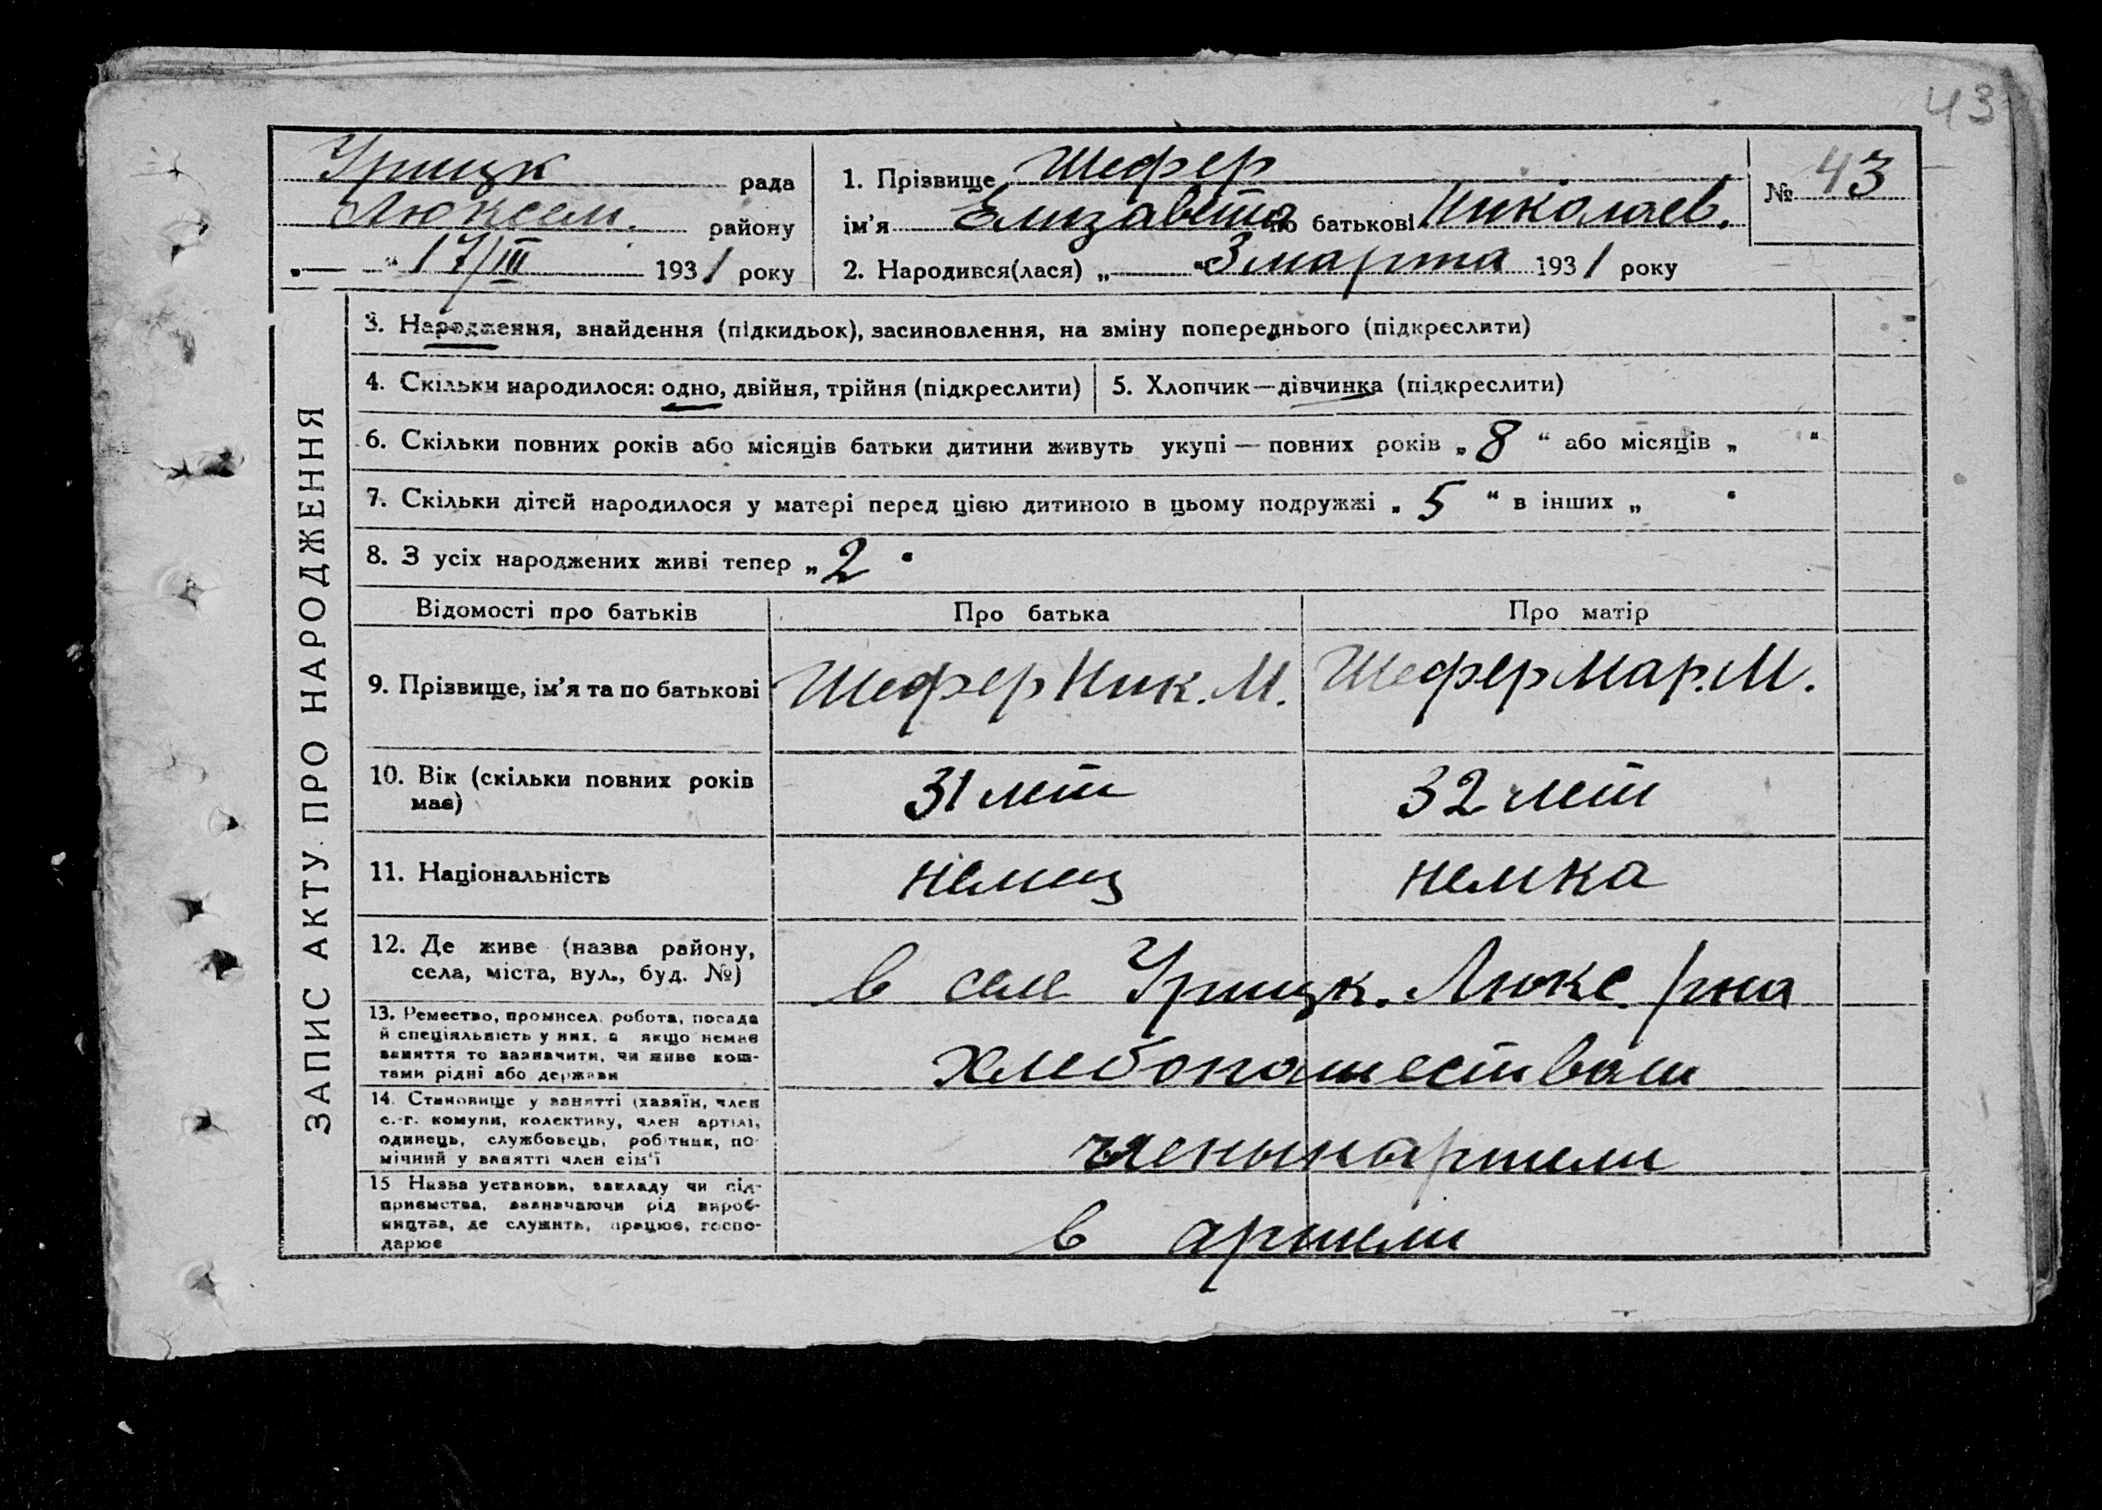 43
Урицк рада
Люксем. району
" 17/III 1931 року
1. Прізвище Шефер
ім'я Елизавета по батькові Николаев.
2. Народився(лася) „ " 3 марта 1931 року
№ 43
ЗАПИС АКТУ ПРО НАРОДЖЕННЯ
3. Народження, знайдення (підкидьок), засиновлення, на зміну попереднього (підкреслити)
4. Скільки народилося: одно, двійня, трійня (підкреслити) 5. Хлопчик—дівчинка (підкреслити)
6. Скільки повних років або місяців батьки дитини живуть укупі — повних років „ 8 “ або місяців „ “
7. Скільки дітей народилося у матері перед цією дитиною в цьому подружжі „ 5 “ в інших „ “
8. З усіх народжених живі тепер „ 2 “
Відомості про батьків Про батька Про матір
9. Прізвище, ім'я та по батькові Шефер Ник. М. Шефер Мар. М.
10. Вік (скільки повних років
має)
31 лет 32 лет
11. Національність немец немка
12. Де живе (назва району,
села, міста, вул., буд. №)
в селе Урицк. Люкс. р/на
13. Ремество, промисел, робота, посада
й спеціяльність у них, а якщо немає
заняття то зазначити, чи живе кош-
тами рідні або держави
хлебопашеством
14. Становище у занятті (хазяїн, член
с.-г. комуни, колективу, член артілі,
одинець, службовець, робітник, по-
мічний у занятті член сім'ї
члены артели
15 Назва установи, закладу чи під-
приємства, зазначаючи рід вироб-
ництва, де служить, працює, госпо-
дарює
в артели